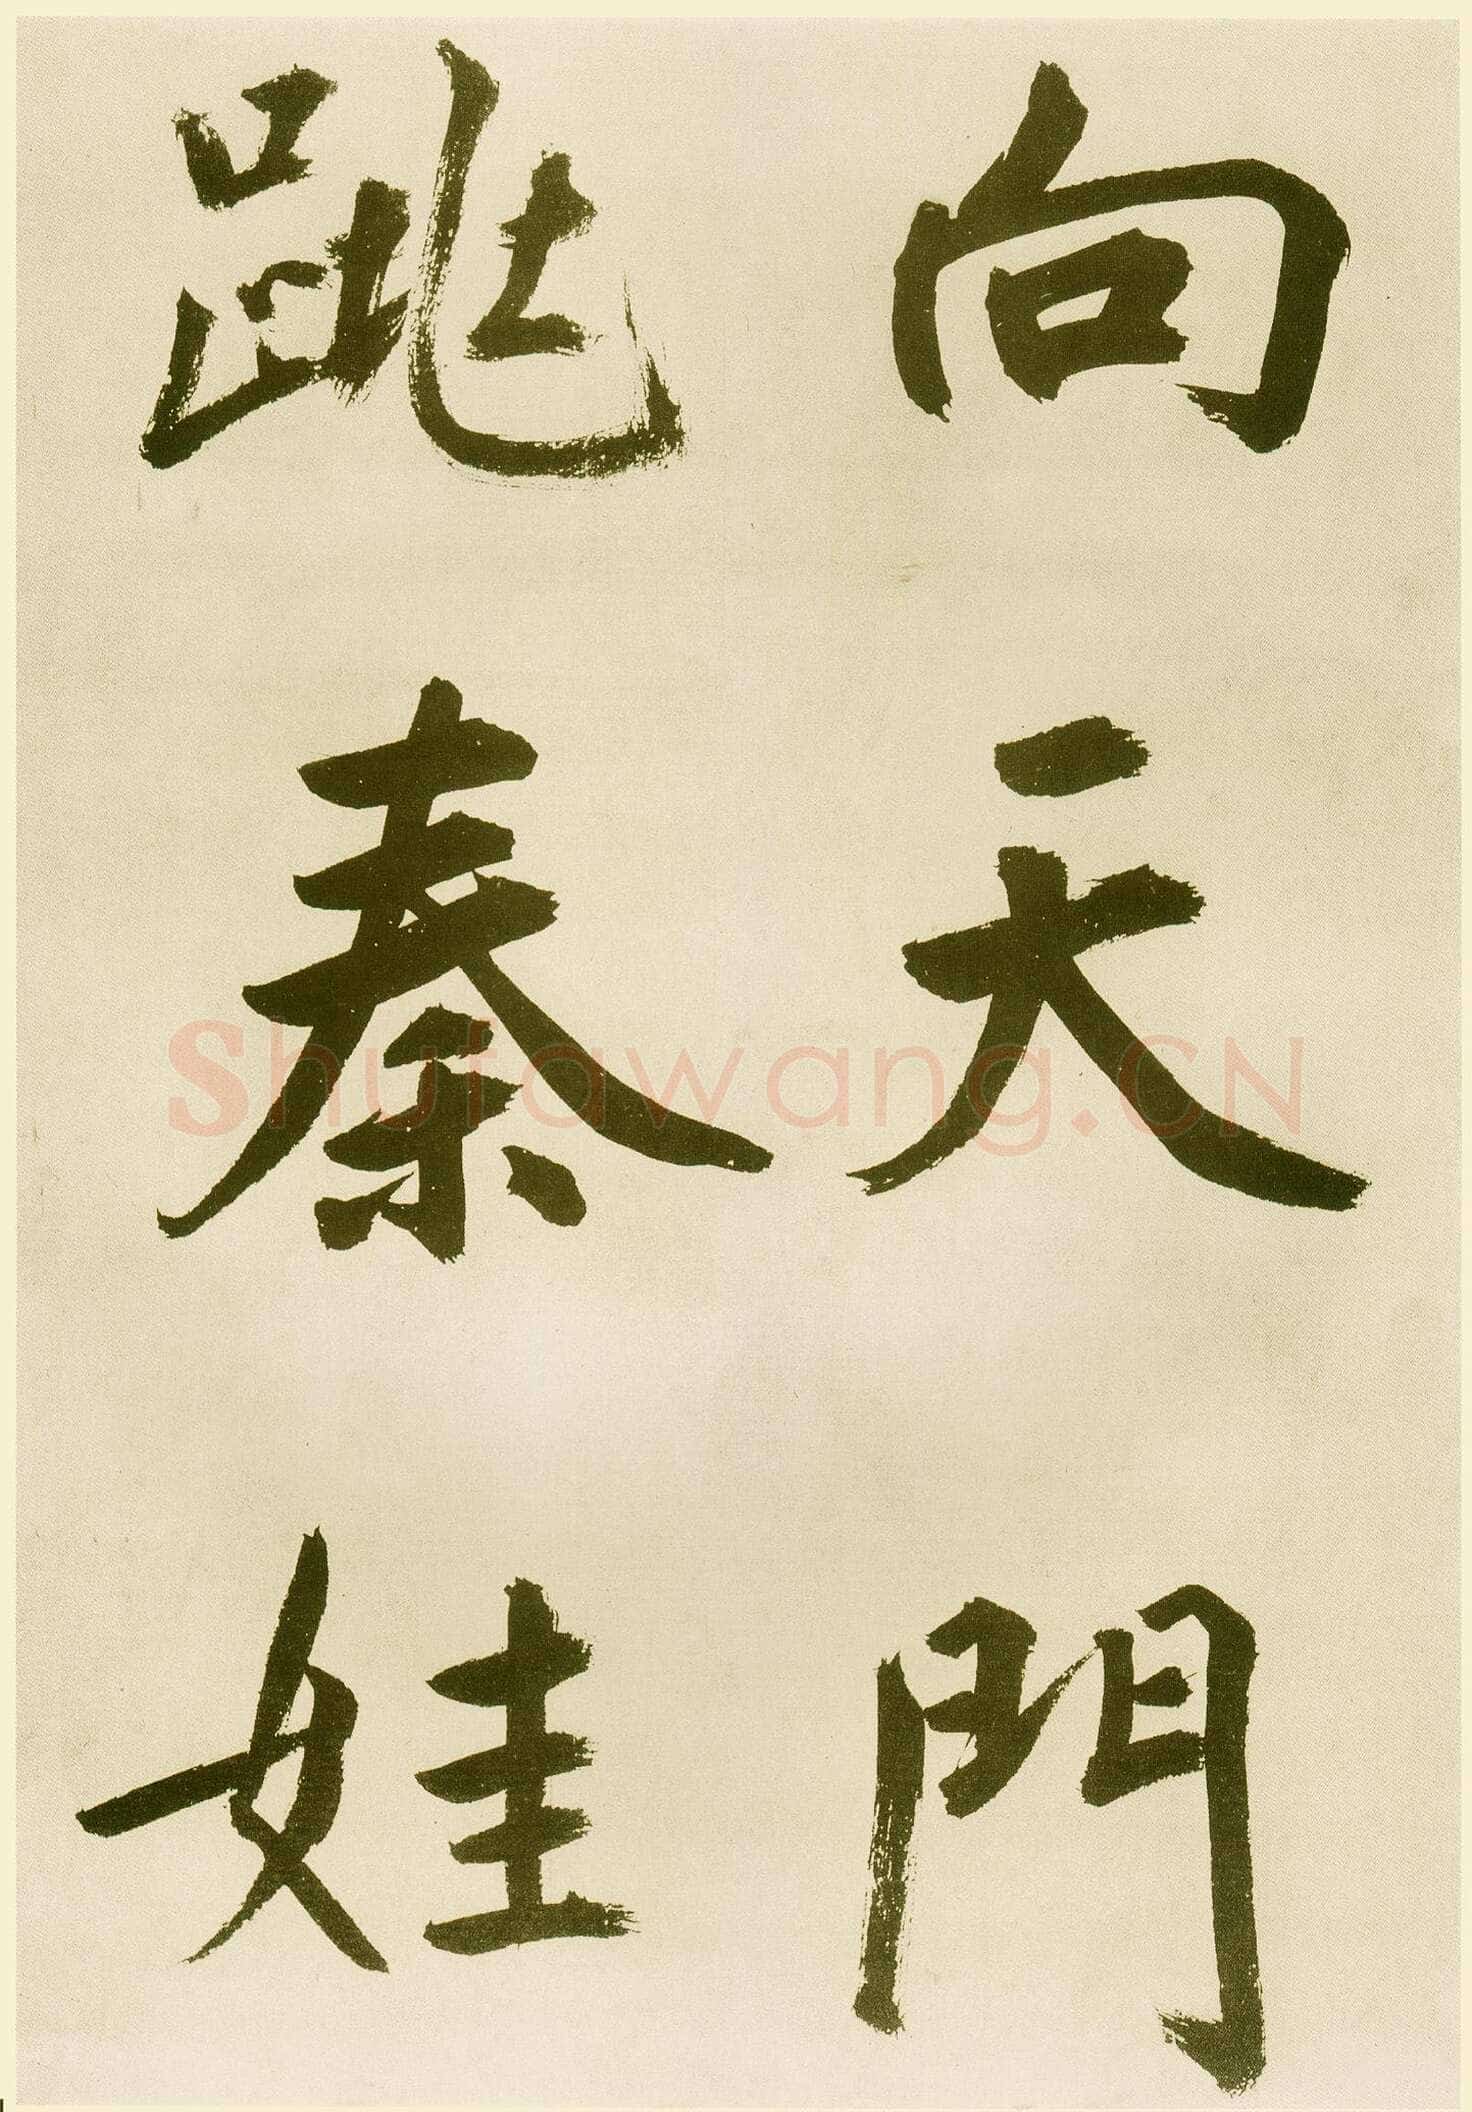 向天門
跳秦娃
Shufawang.CN